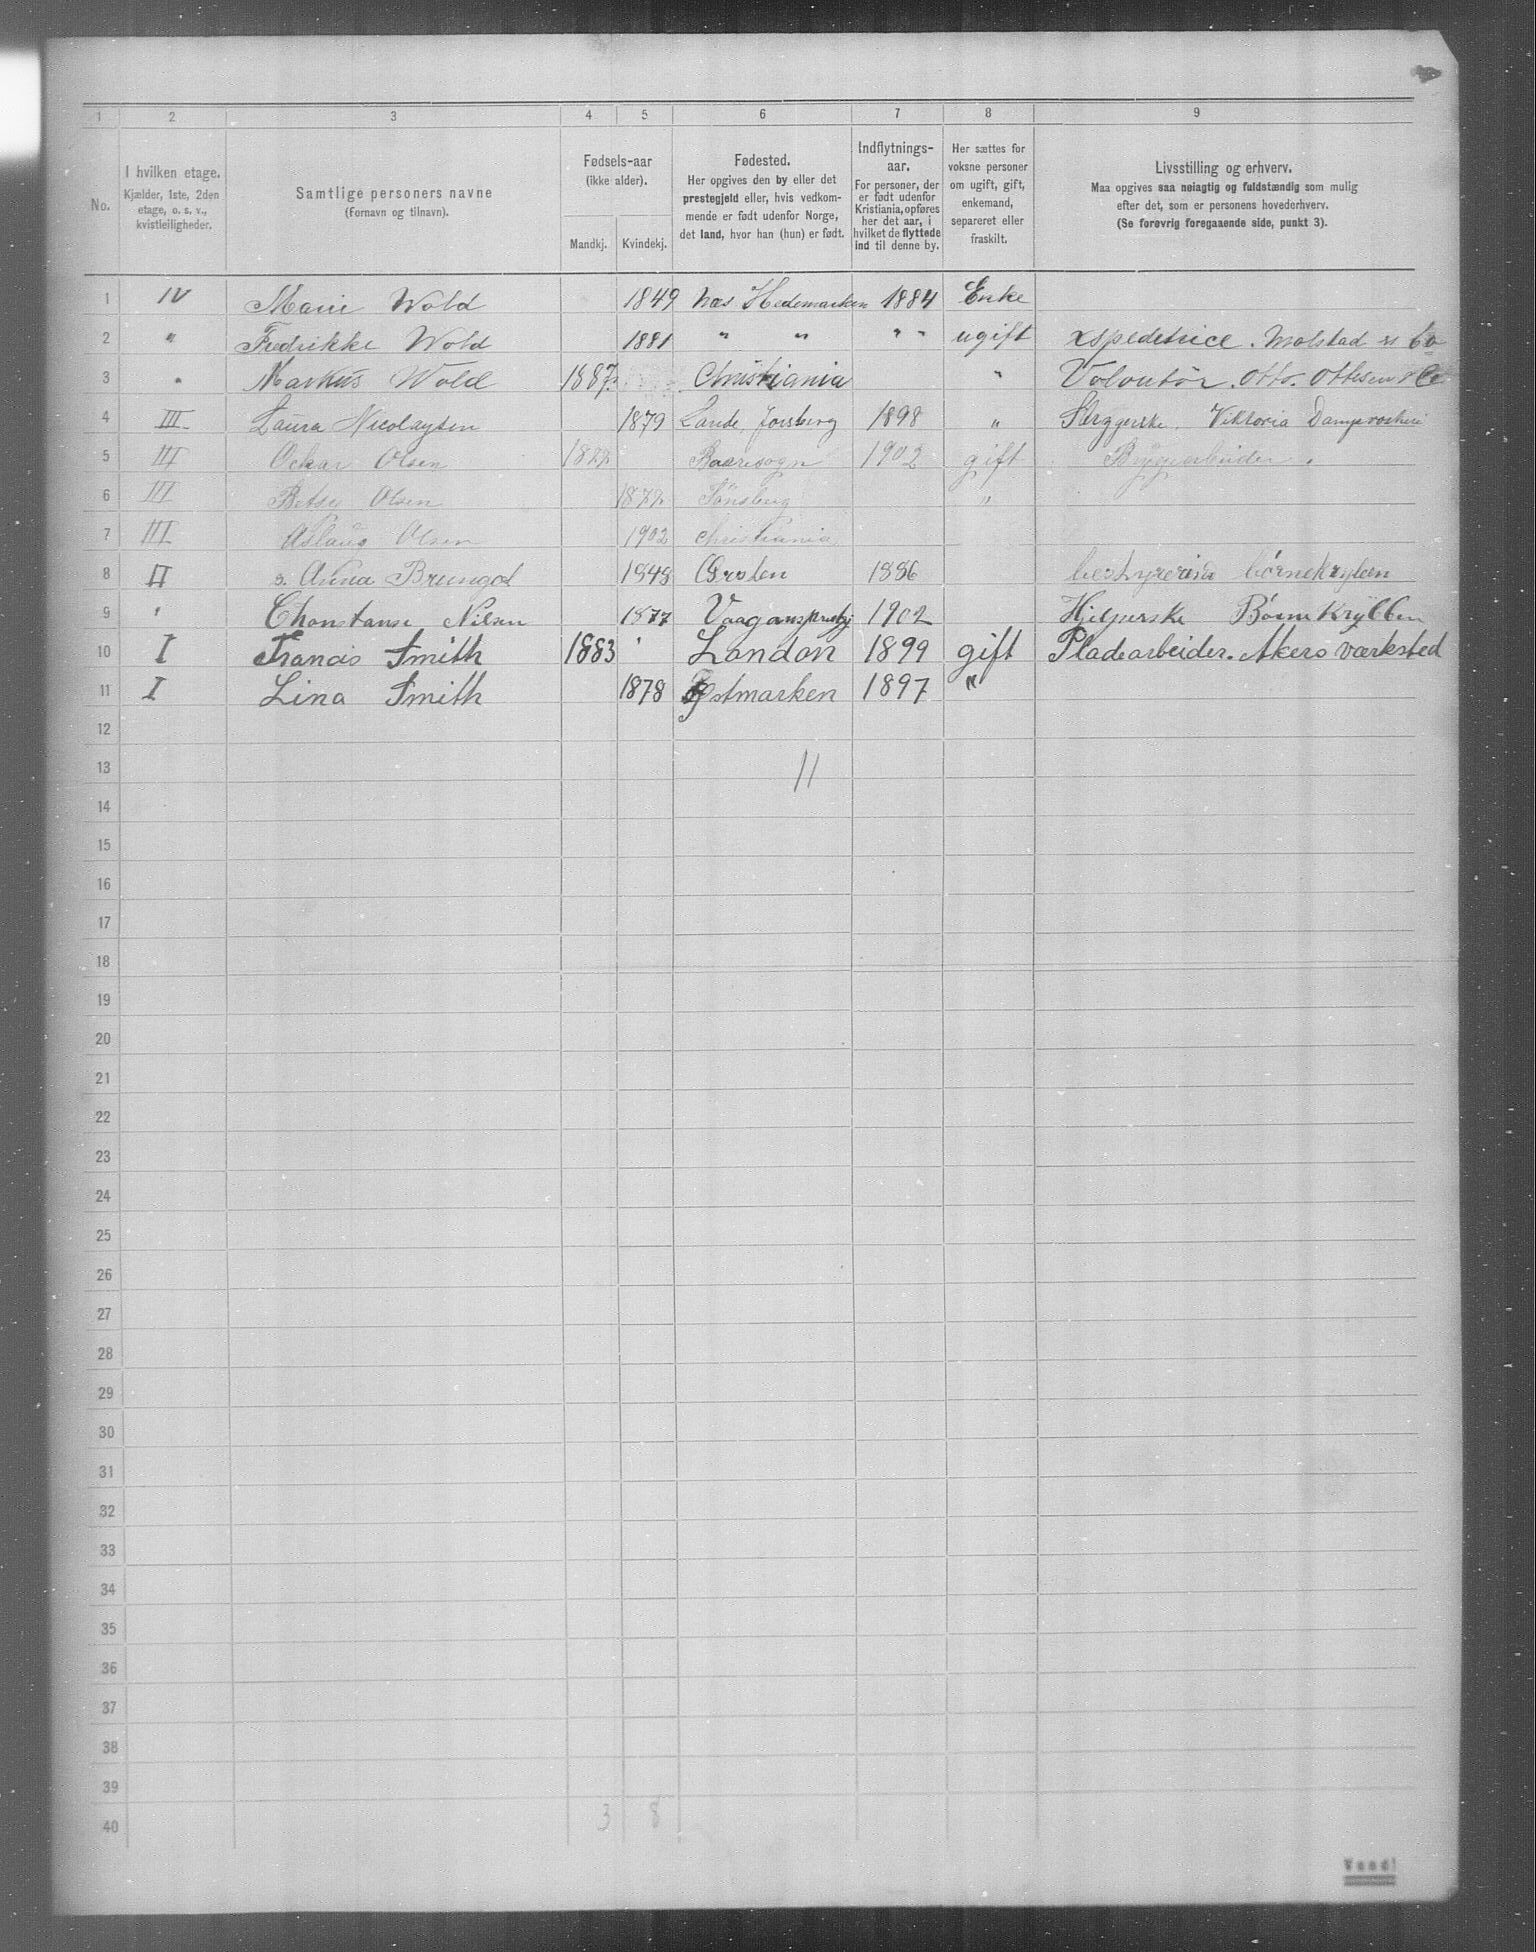 1 2 3 4 5 6 7 8 9
No.
I hvilken etage.
Kjælder, 1ste, 2den
etage, o. s. v.,
kvistleiligheder.
Samtlige personers navne
(Fornavn og tilnavn).
Fødsels-aar
(ikke alder).
Mandkj. Kvindekj.
Fødested.
Her opgives den by eller det
prestegjeld eller, hvis vedkom-
mende er født udenfor Norge,
det land, hvor han (hun) er født.
Indflytnings-
aar.
For personer, der
er født udenfor
Kristiania, opføres
her det aar, i
hvilket de flyttede
ind til denne by.
Her sættes for
voksne personer
om ugift, gift,
enkemand,
separeret eller
fraskilt.
Livsstilling og erhverv.
Maa opgives saa nøiagtig og fuldstændig som mulig
efter det, som er personens hovederhverv.
(Se forøvrig foregaaende side, punkt 3).
1 IV Marie Wold 1849 Næs Hedemarken 1884 Enke
2 " Fredrikke Wold 1881 " " " " ugift xspedetrice. Molstad & Co
3 " Markus Wold 1887 Christiania " Volontør. Otto. Ottesen & Co
4 III Laura Nicolaysen 1879 Sande, Jarlsberg 1898 " Strygerske. Viktoria Dampvaskeri
5 III Oskar Olsen 1902 gift Bryggearbeider.
6 III Betsy Olsen 1872 Tönsberg "
7 III Aslaug Olsen 1902 Christiania
8 II s. Anna 1848 Ørsten 1886 bestyrerina
9 " Chonstanse Nilsen 1877 1902 Hjelperske Børnekrybben
10 I Francis Smith 1883 London 1899 gift Pladearbeider. Akers værksted
11 I Lina Smith 1878 Østmarken 1897 "
12
13 11
14
15
16
17
18
19
20
21
22
23
24
25
26
27
28
29
30
31
32
33
34
35
36
37
38
39
40 3 8
Vend!